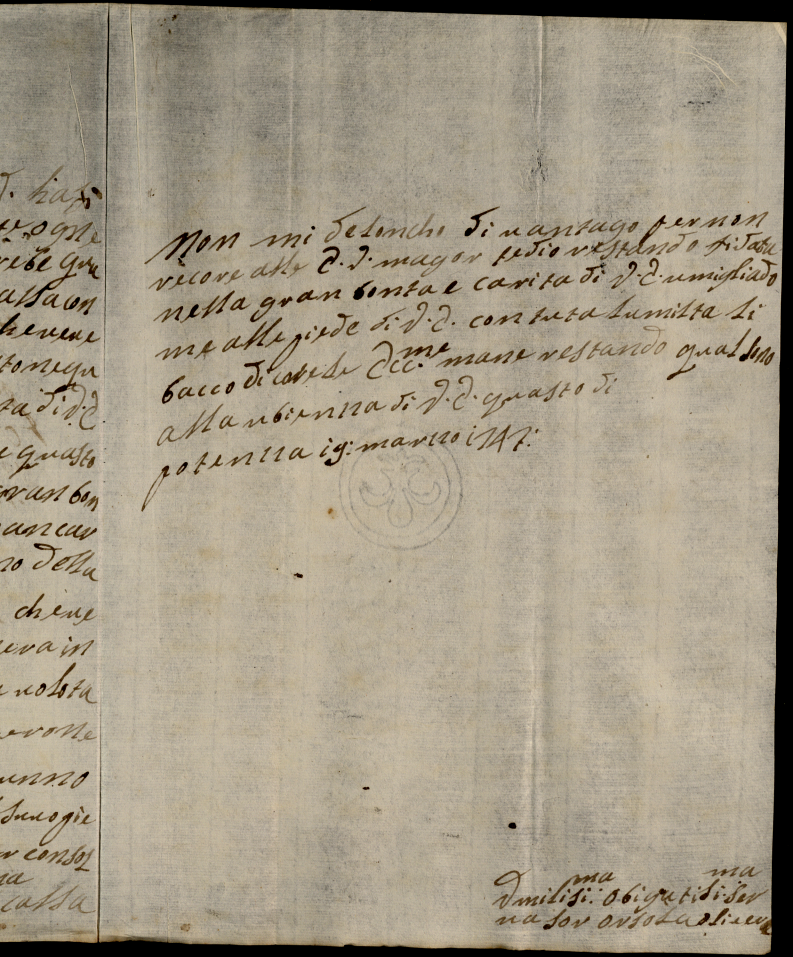 d.ha si
te ogne
rebe gra
alla con
che vene
to negu
ta di V.E.
e questo
gran bon
ancar
no della
che ve
eva in
volota
erone
unno
suo gie
r consol
na
calla
Non mi destendo di vantago per non
recore alle E.V. magor tedio restando fidata
nella gran bonta e carita di V.E. umigliado
me alle piede di V.E. con tuta lumilta li
bacco di core le Ecc.me mane restando qual sono
alla ubienza di V.E. questo di
potenza 19: marzo 1747:
Vmilisi:ma obigatisi:ma ser
va sor orsola